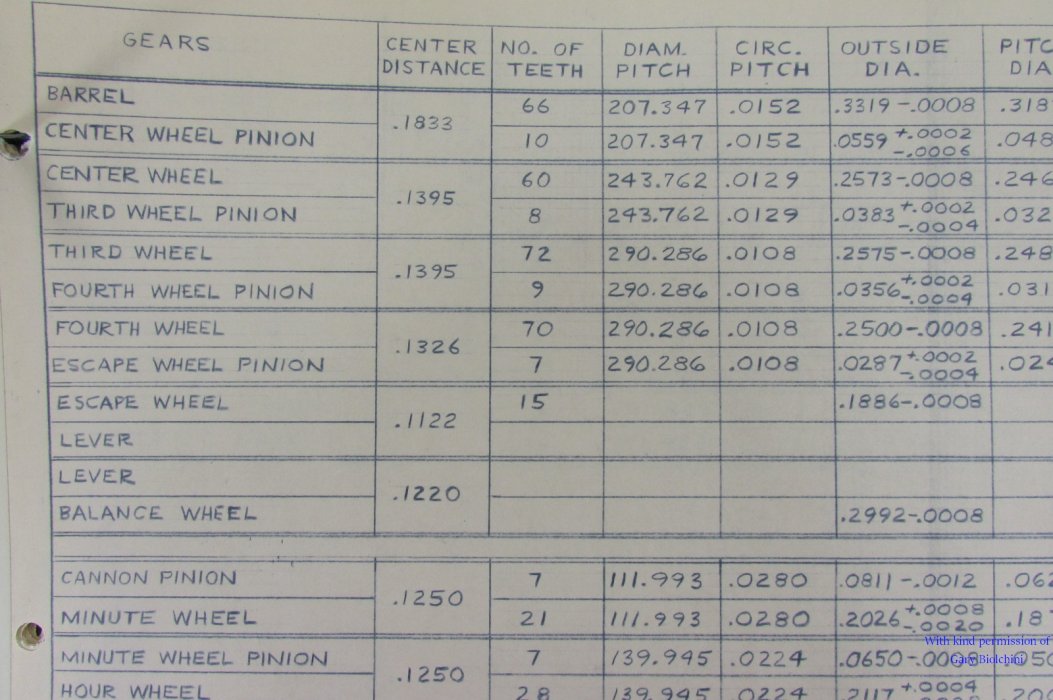 GEARS CENTER DISTANCE NO. OF TEETH DIAM. PITCH CIRC. PITCH OUTSIDE DIA. PITC DIA
BARREL .1833 66 207.347 .0152 .3319-.0008 .318
CENTER WHEEL PINION 10 207.347 .0152 .0559 +.0002 -.0006 .048
CENTER WHEEL .1395 60 243.762 .0129 .2573-.0008 .246
THIRD WHEEL PINION 8 243.762 .0129 .0383 +.0002 -.0004 .032
THIRD WHEEL .1395 72 290.286 .0108 .2575-.0008 .248
FOURTH WHEEL PINION 9 290.286 .0108 .0356 +.0002 -.0004 .031
FOURTH WHEEL .1326 70 290.286 .0108 .2500-.0008 .241
ESCAPE WHEEL PINION 7 290.286 .0108 .0287 +.0002 -.0004 .024
ESCAPE WHEEL .1122 15 .1886-.0008
LEVER
LEVER .1220
BALANCE WHEEL .2992-.0008
CANNON PINION .1250 7 111.993 .0280 .0811-.0012 .062
MINUTE WHEEL 21 111.993 .0280 .2026 +.0008 -.0020 .18
MINUTE WHEEL PINION .1250 7 139.945 .0224 .0650-.0008 .050
HOUR WHEEL 28 139.945 .0224 .2117 +.0004 .20
With kind permission of
Gary Biolchini